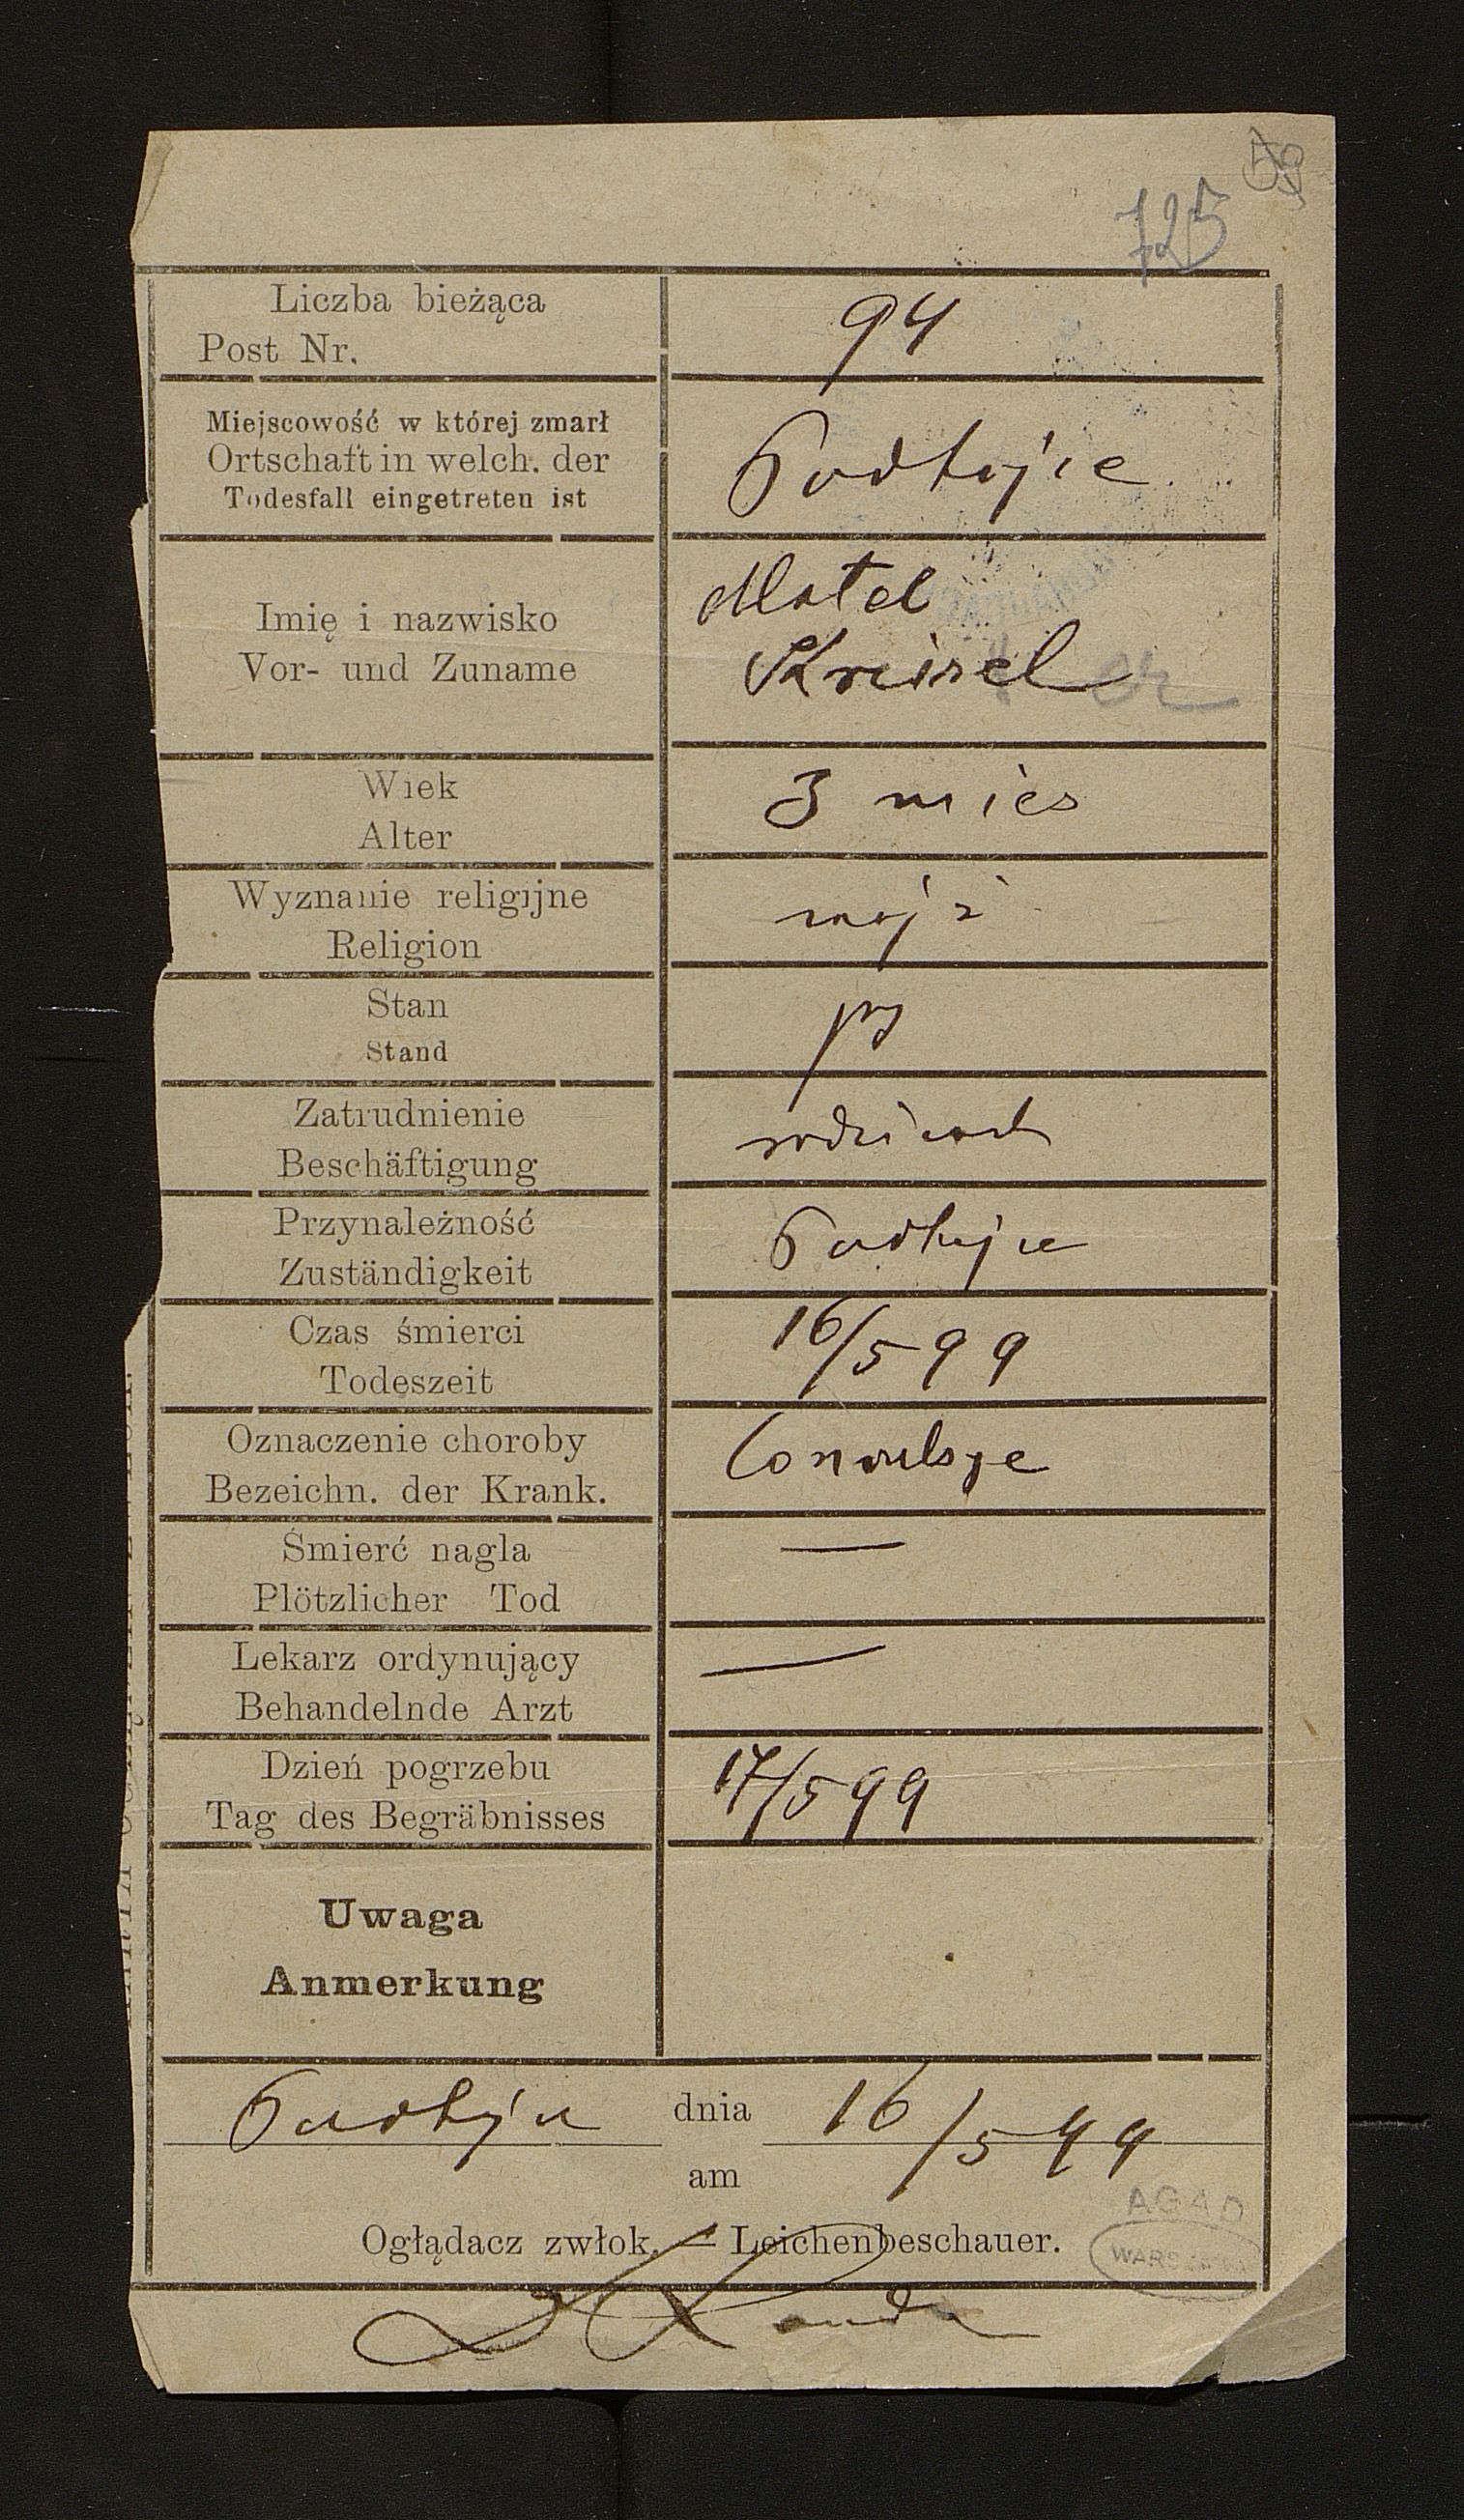 59
725
Liczba bieżąca
Post Nr.
94
Miejscowość w której zmarł
Ortschaft in welch. der
Todesfall eingetreten ist
Podhajce
Imię i nazwisko
Vor- und Zuname
Motel
Kreisel
er
Wiek
Alter
3 mies
Wyznanie religijne
Religion
mojż
Stan
Stand
przy
Zatrudnienie
Beschäftigung
rodzicach
Przynależność
Zuständigkeit
Podhajce
Czas śmierci
Todeszeit
16/5 99
Oznaczenie choroby
Bezeichn. der Krank.
Convulsye
Śmierć nagla
Plötzlicher Tod
—
Lekarz ordynujący
Behandelnde Arzt
—
Dzień pogrzebu
Tag des Begräbnisses
17/5 99
Uwaga
Anmerkung
Podhajce dnia 16/5 99
am
AGAD
WARSZAWA
Oglądacz zwłok. — Leichenbeschauer.